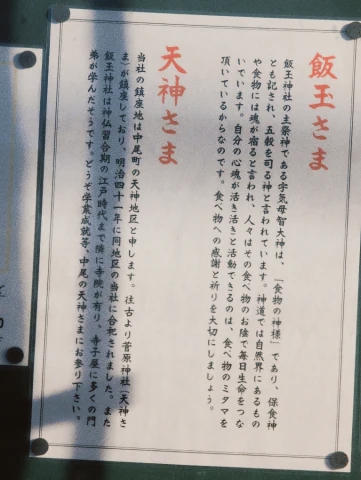 飯玉さま
飯玉神社の主祭神である宇気母智大神は、「食物の神様」であり、保食神
とも記され、五穀を司る神と言われています。神道では自然界にあるもの
や食物には魂が宿ると言われ、人々はその食べ物のお陰で毎日生命をつな
いでいます。自分の心魂が活き活きと活動できるのは、食べ物のミタマを
頂いているからなのです。食べ物への感謝と祈りを大切にしましょう。
天神さま
当社の鎮座地は中尾町の天神地区と申します。往古より菅原神社(天神さ
ま)が鎮座しており、明治四十一年に同地区の当社に合祀されました。また
飯玉神社は神仏習合期の江戸時代まで隣に寺院が有り、寺子屋に多くの門
弟が学んだそうです。どうぞ学業成就等、中尾の天神さまにお参り下さい。